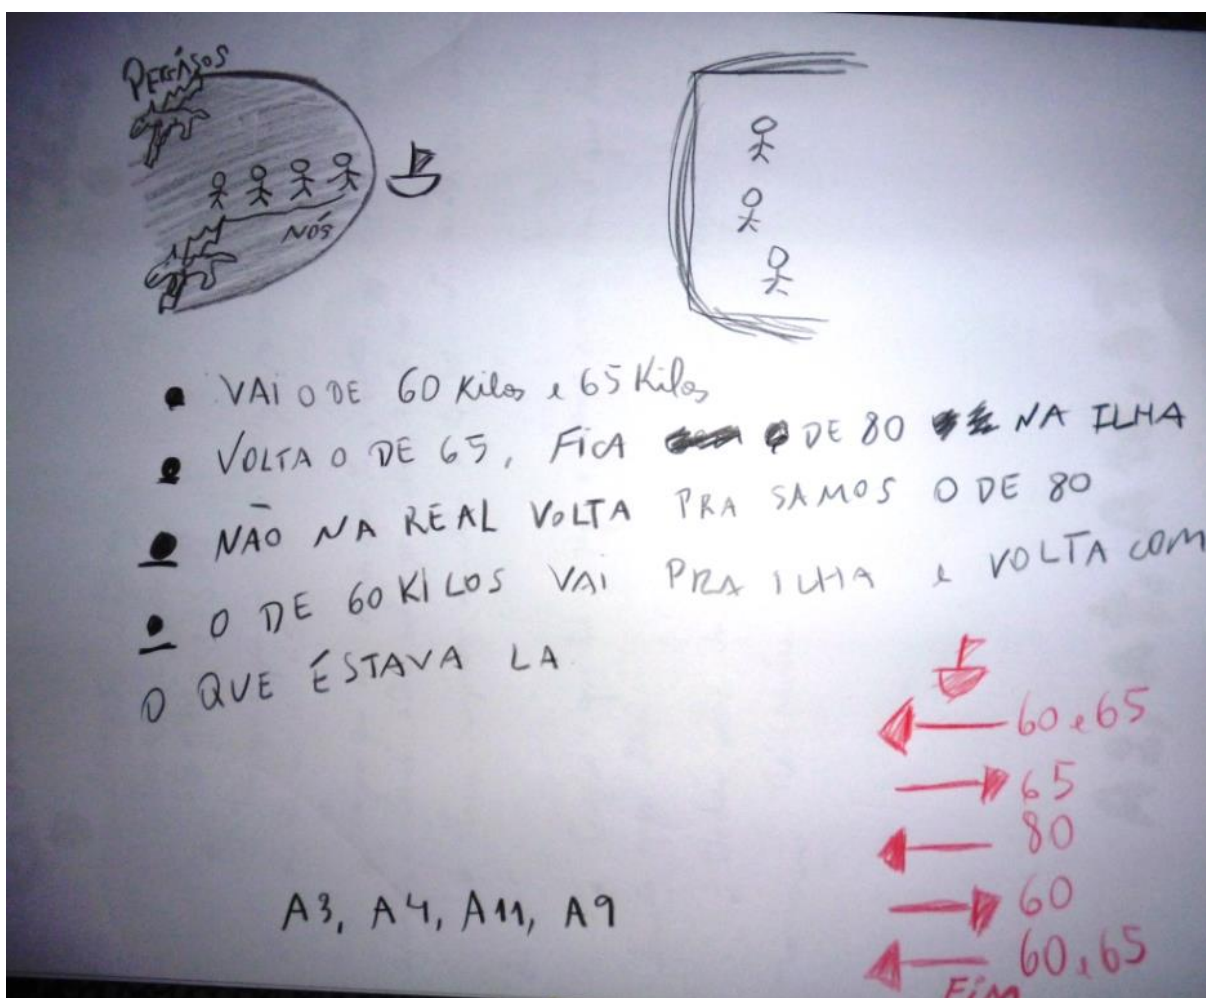 PEGÁSOS
NÓS
VAI O DE 60 Kilos e 65 Kilos
VOLTA O DE 65, FICA DE 80 NA ILHA
NÃO NA REAL VOLTA PRA SAMOS O DE 80
O DE 60 KILOS VAI PRA ILHA e VOLTA COM
O QUE ÉSTAVA LA
60 e 65
65
80
60
60 e 65
FIM
A3, A4, A11, A9